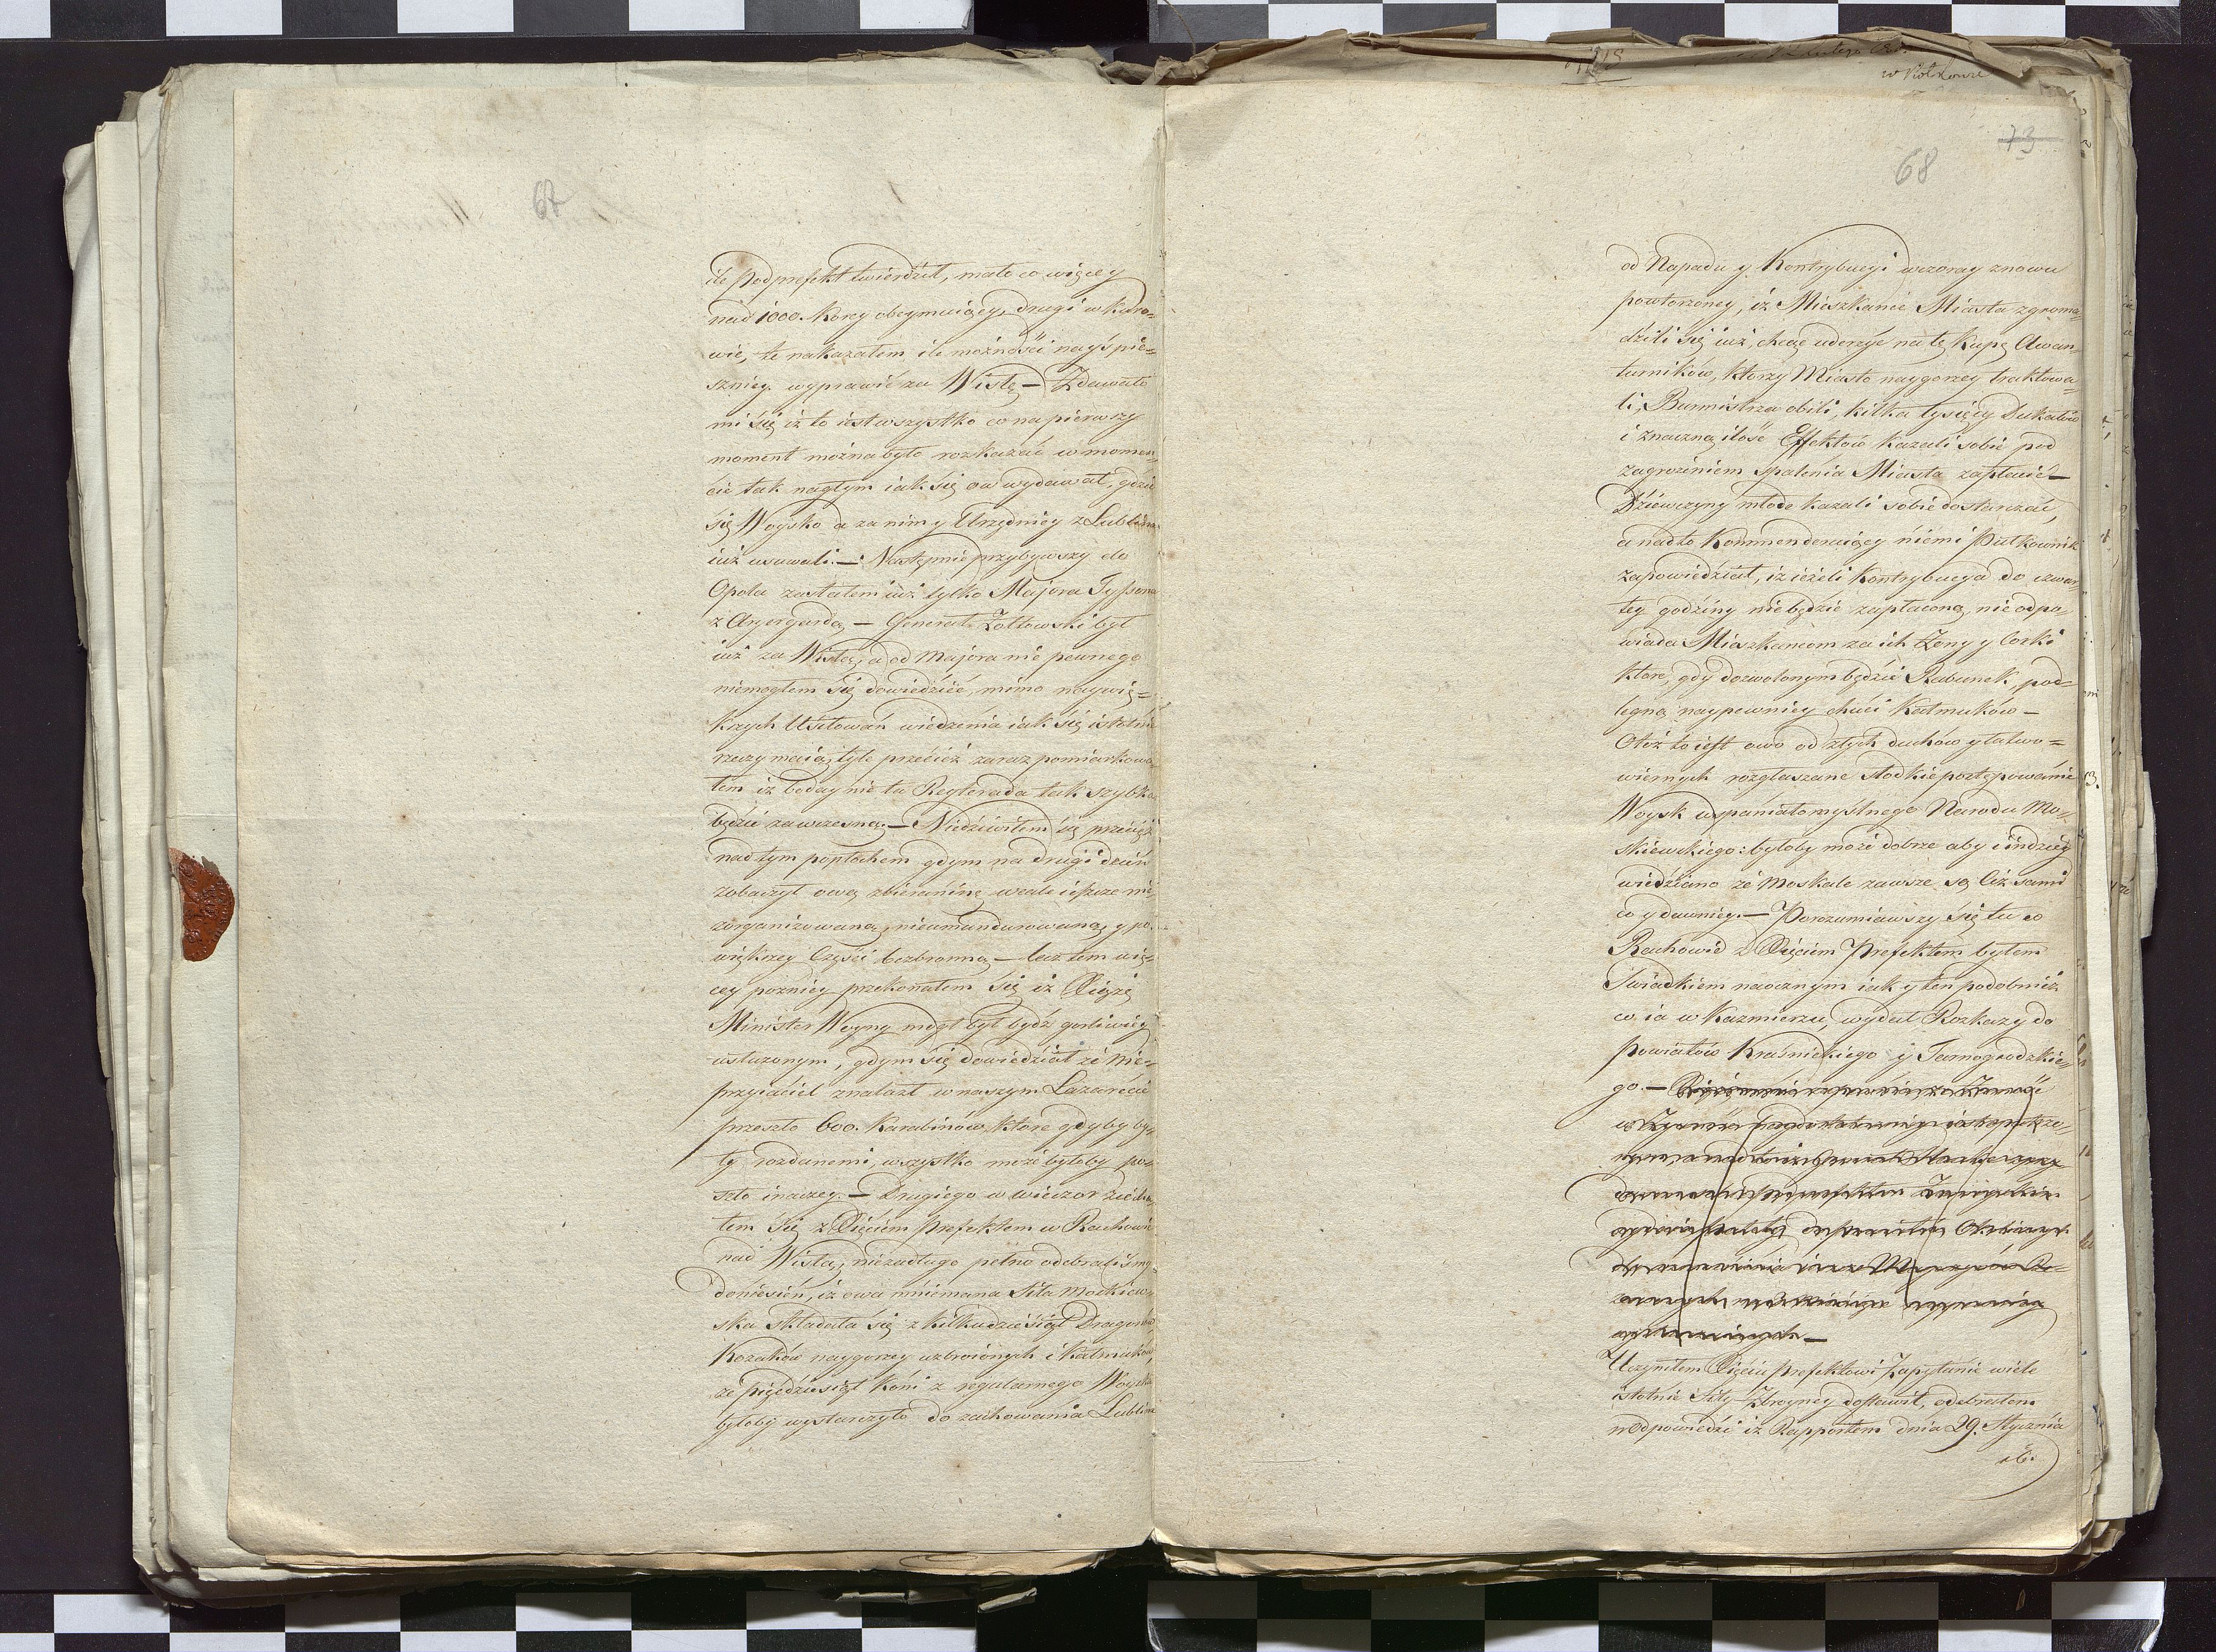 67
ile Podprefekt twierdził, mało co więcey
nad 1000. Korcy obeymuiący, drugi w Kuro=
wie, te nakazałem ile możności nayśpie=
szniey wyprawić za Wisłę — Zdawało
mi się iż to iest wszystko co na pierwszy
moment można było rozkazać w momen=
cie tak nagłym iak się on wydawał, gdzie
się Woysko a za nim y Urzędnicy z Lublina
iuż usuwali. — Następnie przybywszy do
Opola zastałem iuż tylko Majora Tyssona
z Aryergardą — Generał Żołtowski był
iuż za Wisłą, a od Majora nic pewnego
niemogłem się dowiedzieć, mimo naywię=
kszych Usiłowań wiedzenia iak się istotnie
rzeczy maią, tyle przecież zaraz pomiarkowa
łem iż boday nie ta Reyterada tak szybka
będzie zawczesną. — Niedziwiłem się przecież
nad tym popłochem gdym na drugi dzień
zobaczył ową zbieraninę wcale ieszcze nie
zorganizowaną, nieumundurowaną y po
większey Części bezbronną — lecz tem wię=
cey pozniey przekonałem się iż Xiąże
Minister Woyny mógł był bydź gorliwiey
usłużonym, gdym się dowiedział że Nie=
przyiaciel znalazł w naszym Lazarecie
przeszło 600. Karabinów które gdyby by=
ły rozdanemi, wszystko może byłoby po=
szło inaczey. — Drugiego w wieczor ziecha
łem się z Xięciem Prefektem w Rachowie
nad Wisłą, niezadługo pełno odebraliśmy
doniesień, iż owa mniemana Siła Moskiew
ska składała się z kilkudziesiąt Dragonów,
Kozaków naygorzey uzbroionych i Kałmuków,
że pięćdziesiąt Koni z regularnego Woyska
byłoby wystarczyło do zachowania Lublina
w Piotrowie
73
68
od Napadu y Kontrybucyi wczoray znowu
powtorzoney, iż Mieszkańcie Miasta zgroma=
dzili się iuż, chcąc uderzyć na tę kupę Awan=
turników, którzy Miasto naygorzey traktowa=
li, Burmistrza obili, kilka tysięcy Dukatów
i znaczną ilość Effektów kazali sobie pod
zagrożeniem spalenia Miasta zapłacić —
Dziewczyny młode kazali sobie dostarczać,
a nadto Kommenderuiący niemi Pułkownik
zapowiedział, iż ieżeli Kontrybucya do czwar=
tey godziny niebędzie zapłaconą, nie odpo=
wiada Mieszkancom za ich Żony y Corki
które, gdy dozwolonym będzie Rabunek, pod=
legną naypewniey chuci Kałmuków —
Otóż to iest owo od złych duchów y łatwo=
wiernych rozgłaszane słodkie postępowanie
Woysk wspaniałomyślnego Narodu Mo=
skiewskiego: byłoby może dobrze aby i indziey
wiedziano że Moskale zawsze są Ciż sami
co y dawniey. — Porozumiawszy się tu w
Rachowie z Xięciem Prefektem byłem
Swiadkiem naocznym iak y ten podobnież
co ia w Kazmierzu, wydał Rozkazy do
Powiatów Kraśnickiego y Tarnogrodzkie=
go. —
Uczyniłem Xięciu Prefektowi Zapytanie wiele
istotnie Siły Zbroyney dostawił, odebrałem
w odpowiedzi iż Rapportem dnia 29. Stycznia
r. b.